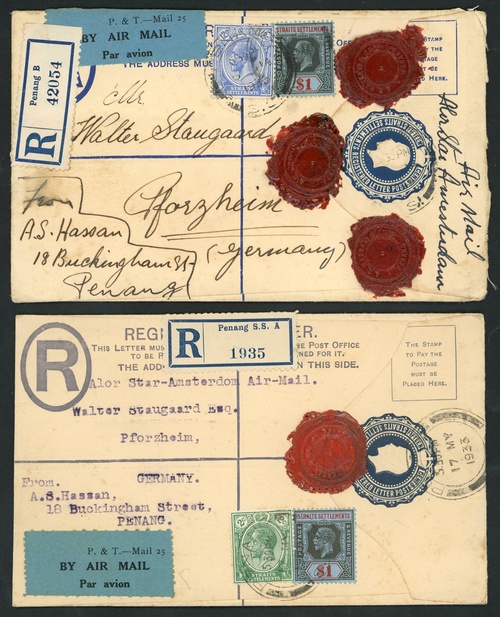 P. & T.—Mail 25
BY AIR MAIL
Par avion
THE ADDRESS MUS
Penang B
R 42054
STRAITS SETTLEMENTS
$1
THE STAMP
POSTAGE
HERE.
Mr.
Walter Staugaard
Pforzheim
(Germany)
Air Mail
Alor Star Amsterdam
From
A.S. Hassan
18 Buckingham St
Penang
STRAITS SETTLEMENTS
REGISTERED LETTER POSTAGE
R
REGI
ER.
Penang S.S. A
R 1935
THIS LETTER MUS
THE POST OFFICE
TO BE R
NED FOR IT.
THE ADD
N THIS SIDE.
THE STAMP
TO PAY THE
POSTAGE
MUST BE
PLACED HERE.
Alor Star-Amsterdom Air-Mail.
Walter Staugaard Esq.
Pforzheim,
GERMANY.
From.
A.S.Hassan,
18 Buckingham Street,
PENANG.
17 MY
1933
P. & T.—Mail 25
BY AIR MAIL
Par avion
STRAITS
SETTLEMENTS
STRAITS SETTLEMENTS
$1